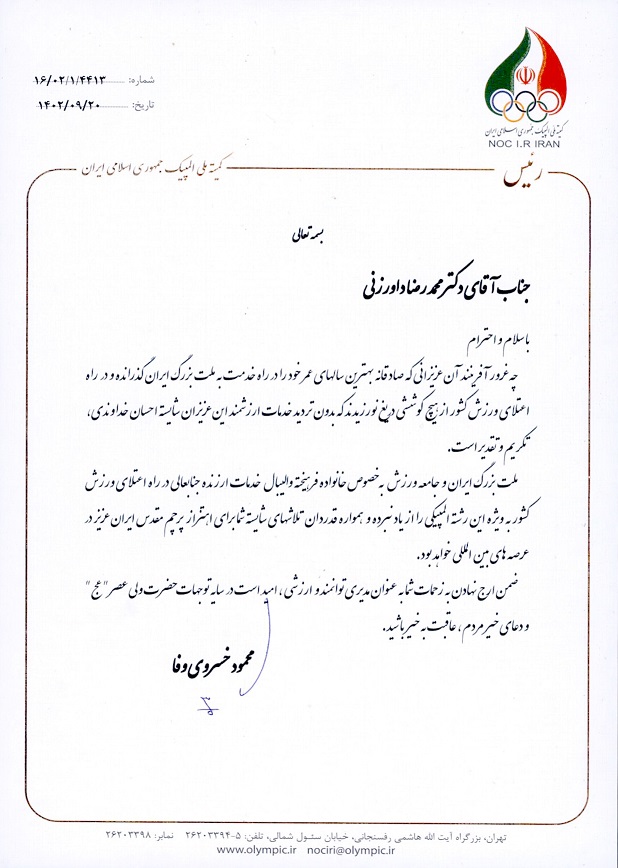 شماره: ۱۶/۰۲/۱/۴۴۱۳
تاریخ: ۱۴۰۲/۰۹/۲۰
کمیته ملی المپیک جمهوری اسلامی ایران
NOC I.R IRAN
رئیس
کمیته ملی المپیک جمهوری اسلامی ایران
بسمه تعالی
جناب آقای دکتر محمدرضا داورزنی
با سلام و احترام
چه غرور آفرینند آن عزیزانی که صادقانه بهترین سالهای عمر خود را در راه خدمت به ملت بزرگ ایران گذرانده و در راه
اعتلای ورزش کشور از هیچ کوششی دریغ نورزیدند که بدون تردید خدمات ارزشمند این عزیزان شایسته احسان خداوندی،
تکریم و تقدیر است.
ملت بزرگ ایران و جامعه ورزش به خصوص خانواده فرهیخته والیبال خدمات ارزنده جنابعالی در راه اعتلای ورزش
کشور به ویژه این رشته المپیکی را از یاد نبرده و همواره قدردان تلاشهای شایسته شما برای اهتزاز پرچم مقدس ایران عزیز در
عرصه های بین المللی خواهد بود.
ضمن ارج نهادن به زحمات شما به عنوان مدیری توانمند و ارزشی، امید است در سایه توجهات حضرت ولی عصر "عج"
و دعای خیر مردم، عاقبت به خیر باشید.
محمود خسروی وفا
تهران، بزرگراه آیت الله هاشمی رفسنجانی، خیابان سئول شمالی، تلفن: ۵-۲۶۲۰۳۳۹۴ نمابر: ۲۶۲۰۳۳۹۸
www.olympic.ir nociri@olympic.ir